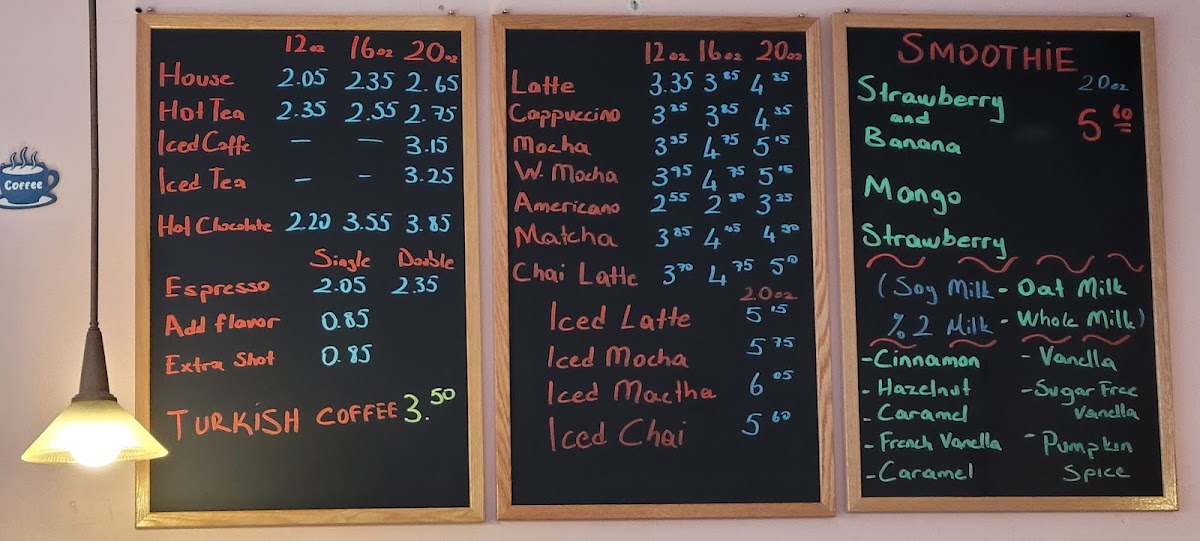 Coffee
12oz 16oz 20oz
House 2.05 2.35 2.65
Hot Tea 2.35 2.55 2.75
Iced Coffe — — 3.15
Iced Tea – – 3.25
Hot Chocolate 2.20 3.55 3.85
Single Double
Espresso 2.05 2.35
Add flavor 0.85
Extra Shot 0.85
TURKISH COFFEE 3.50
12oz 16oz 20oz
Latte 3.35 3.85 4.35
Cappuccino 3.35 3.85 4.35
Mocha 3.95 4.75 5.15
W. Mocha 3.95 4.75 5.15
Americano 2.55 2.90 3.35
Matcha 3.85 4.45 4.90
Chai Latte 3.70 4.75 5.10
20oz
Iced Latte 5.15
Iced Mocha 5.75
Iced Mactha 6.05
Iced Chai 5.60
SMOOTHIE
20oz
Strawberry
and
Banana
5.60
Mango
Strawberry
(Soy Milk - Oat Milk
%2 Milk - Whole Milk)
- Cinnamon - Vanella
- Hazelnut - Sugar Free
- Caramel Vanella
- French Vanella - Pumpkin
- Caramel Spice